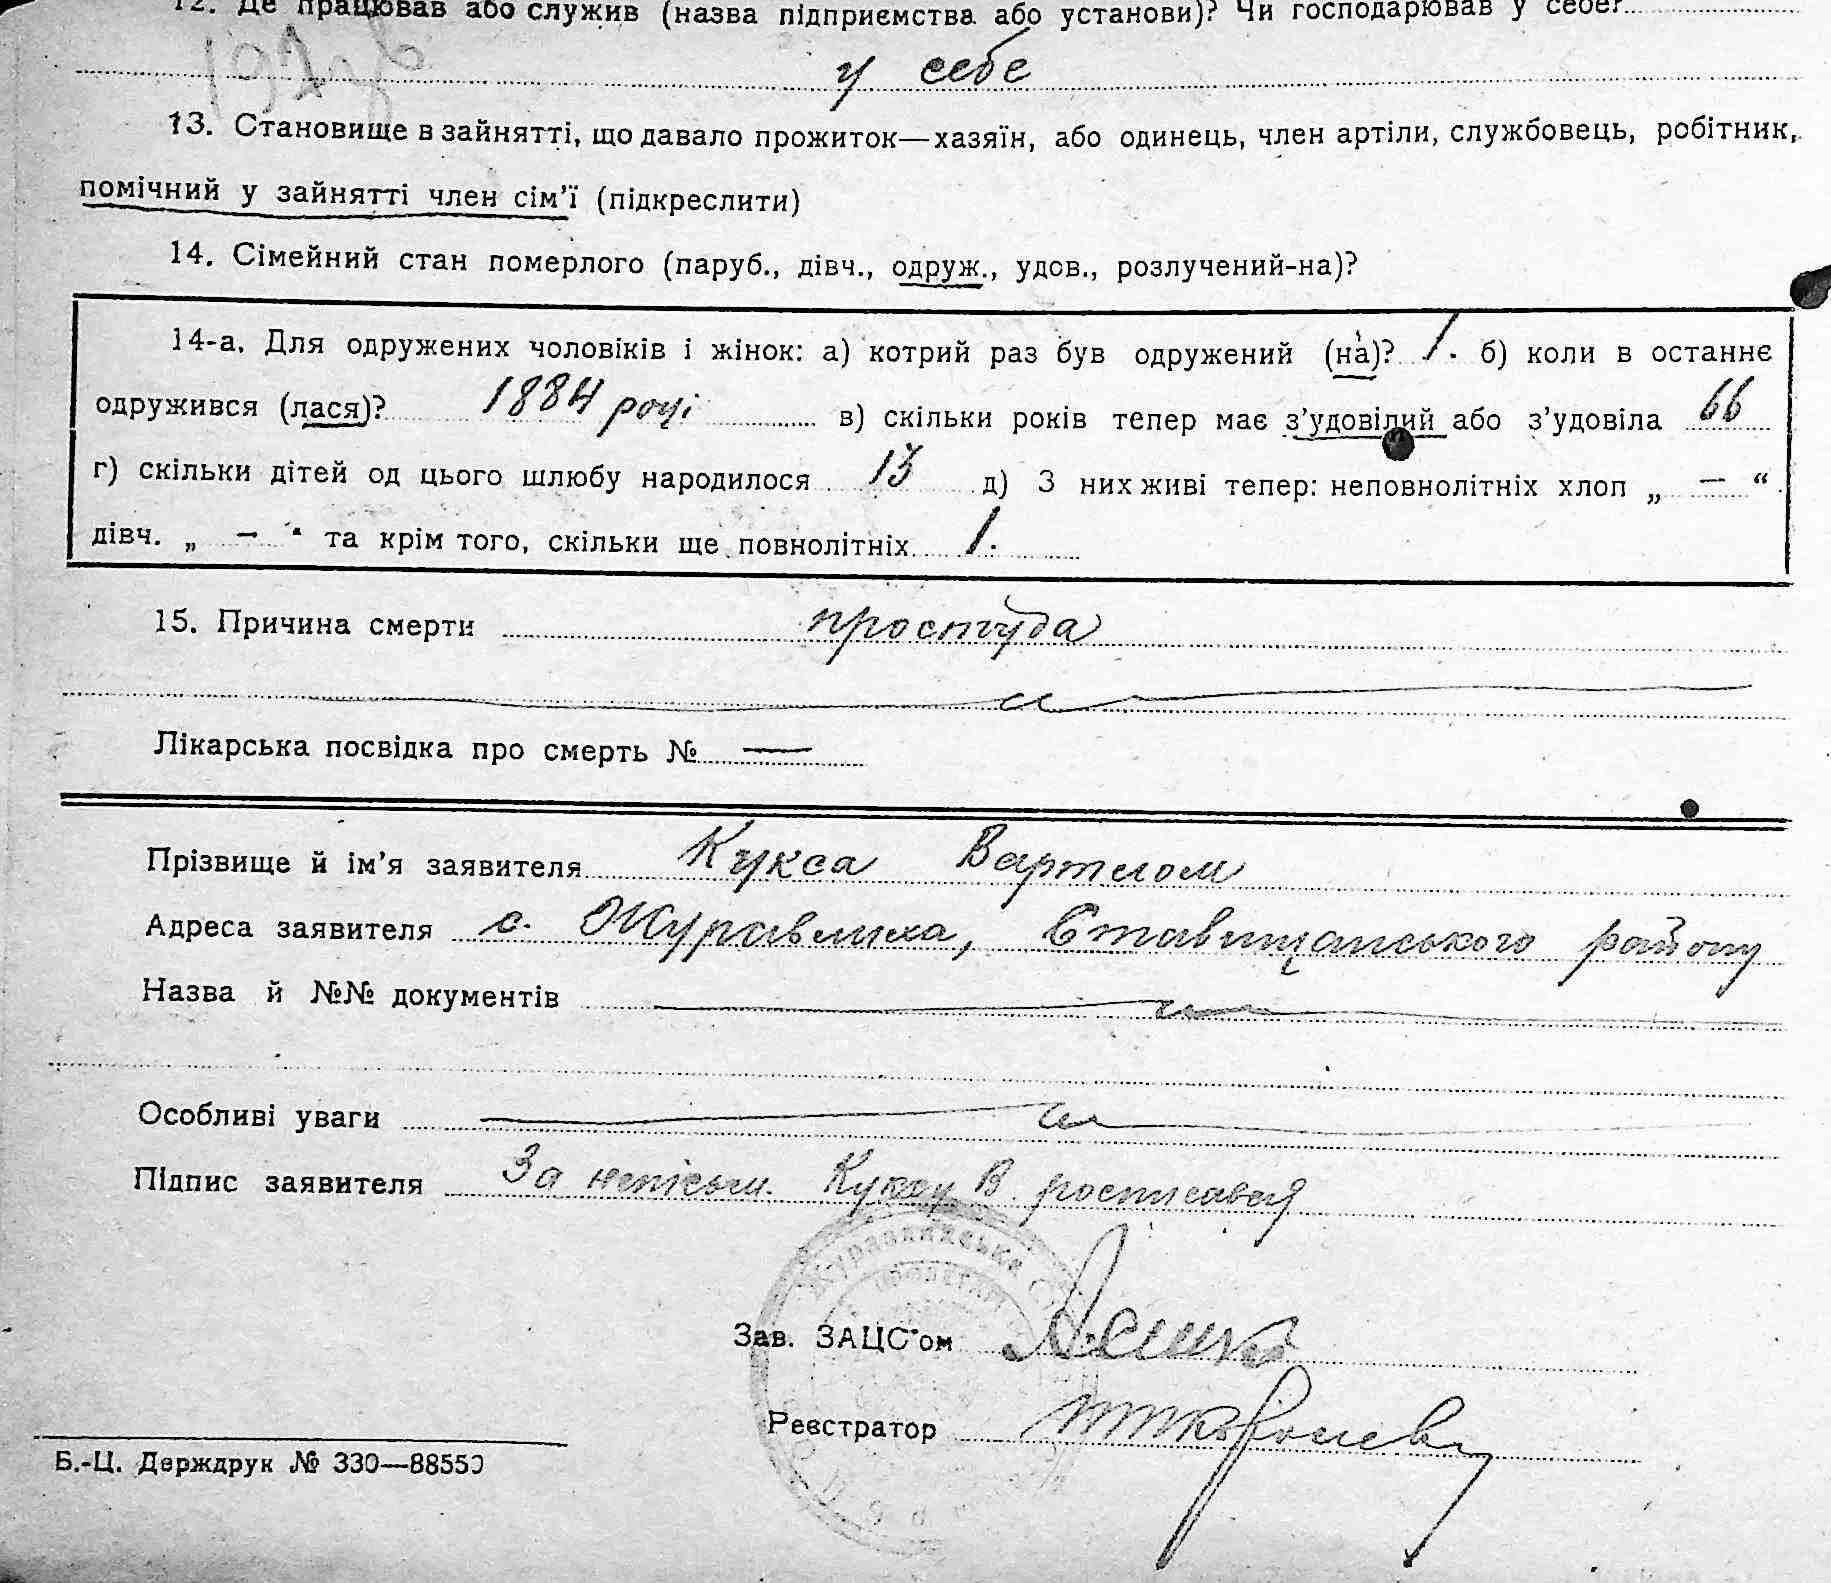 12. Де працював або служив (назва підприємства або установи)? Чи господарював у себе?
у себе
13. Становище в зайнятті, що давало прожиток—хазяїн, або одинець, член артіли, службовець, робітник,
помічний у зайнятті член сім'ї (підкреслити)
14. Сімейний стан померлого (паруб., дівч., одруж., удов., розлучений-на)?
14-а. Для одружених чоловіків і жінок: а) котрий раз був одружений (на)? 1. б) коли в останнє
одружився (лася)? 1884 році в) скільки років тепер має з'удовілий або з'удовіла 66
г) скільки дітей од цього шлюбу народилося 13 д) З них живі тепер: неповнолітніх хлоп „ — “
дівч. „ — “ та крім того, скільки ще повнолітніх 1.
15. Причина смерти простуда
Лікарська посвідка про смерть № —
Прізвище й ім'я заявителя Кукса Вартлом
Адреса заявителя с. Журавлиха, Ставищанського району
Назва й №№ документів
Особливі уваги
Підпис заявителя За неписьм. Куксу В. росписався
Зав. ЗАЦС'ом
Реєстратор
Б.-Ц. Держдрук № 330—88550